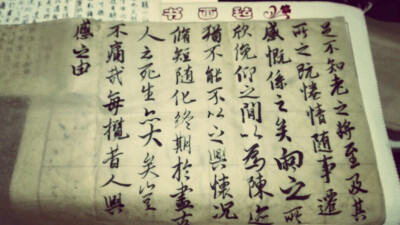 书画毡
足不知老之将至及其
所之既惓情随事遷
感慨係之矣向之所
欣俛仰之間以為陳迹
猶不能不以之興懷況
脩短随化終期於盡古
人云死生亦大矣豈
不痛哉每攬昔人興
感之由